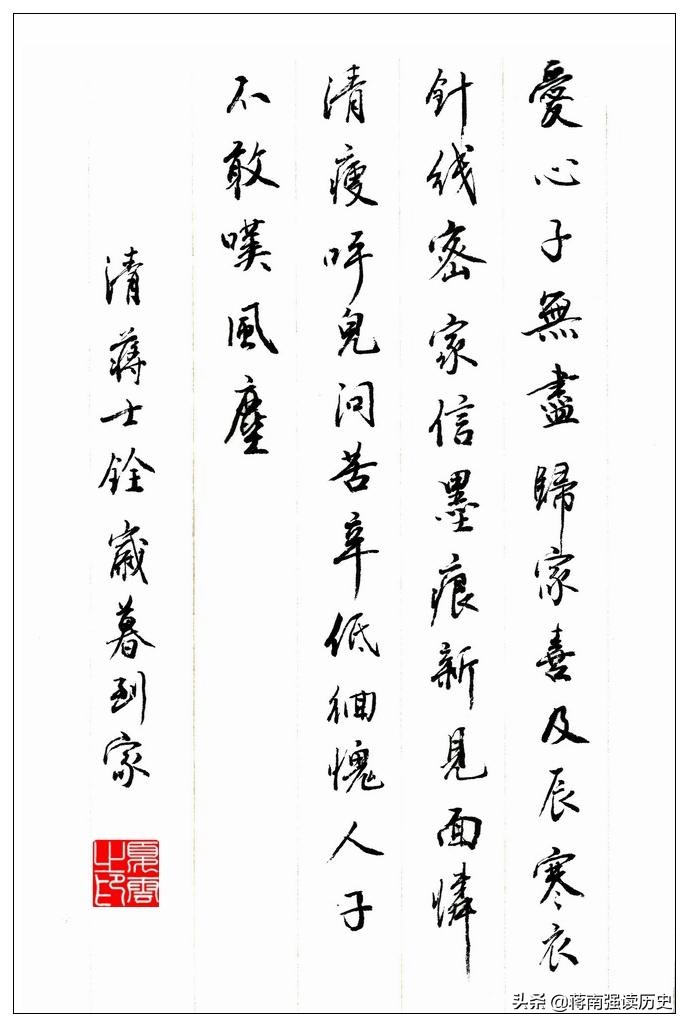 愛心子無盡歸家喜及辰寒衣
針线密家信墨痕新見面憐
清瘦呼兒问苦辛低徊愧人子
不敢嘆風塵
清蔣士銓歲暮到家
头条 @蒋南强读历史